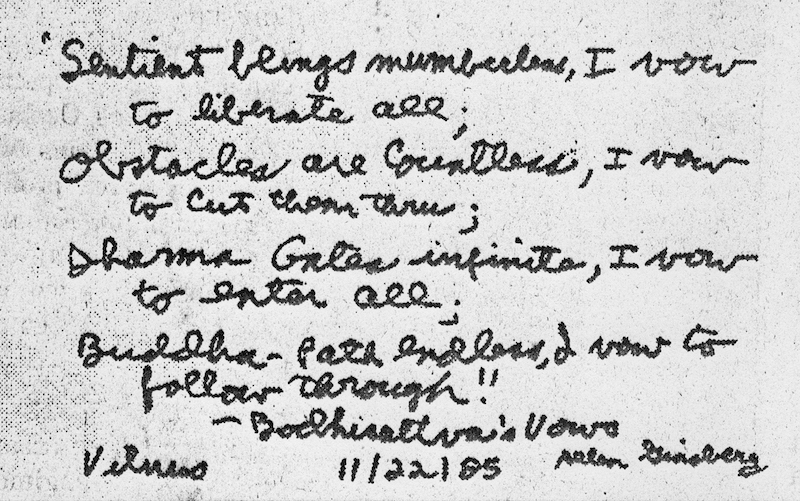 "Sentient beings numberless, I vow
to liberate all;
Obstacles are Countless, I vow
to Cut them thru;
Dharma Gates infinite, I vow
to enter all;
Buddha-Path Endless, I vow to
follow through!!
— Bodhisattva's Vows
Vilnius 11/22/85 Allen Ginsberg